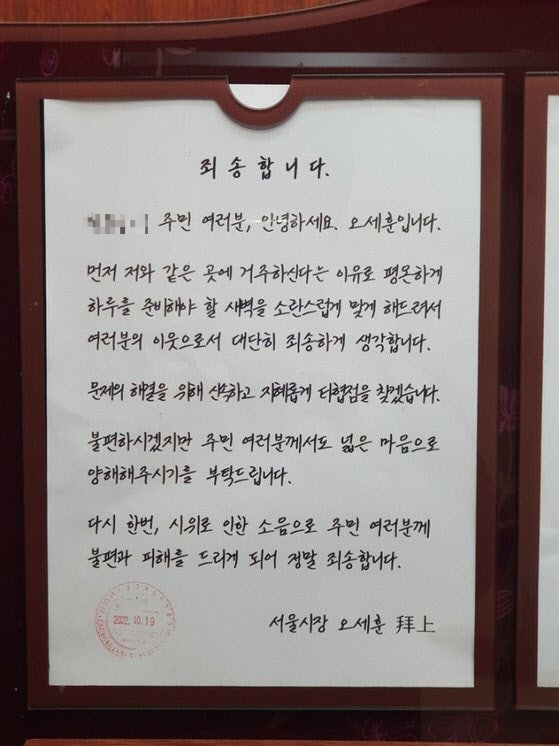 죄송합니다.
주민 여러분, 안녕하세요. 오세훈입니다.
먼저 저와 같은 곳에 거주하신다는 이유로 평온하게
하루를 준비해야 할 새벽을 소란스럽게 맞게 해드려서
여러분의 이웃으로서 대단히 죄송하게 생각합니다.
문제의 해결을 위해 신속하고 지혜롭게 타협점을 찾겠습니다.
불편하시겠지만 주민 여러분께서도 넓은 마음으로
양해해주시기를 부탁드립니다.
다시 한번, 시위로 인한 소음으로 주민 여러분께
불편과 피해를 드리게 되어 정말 죄송합니다.
2022.10.19
서울시장 오세훈 拜上